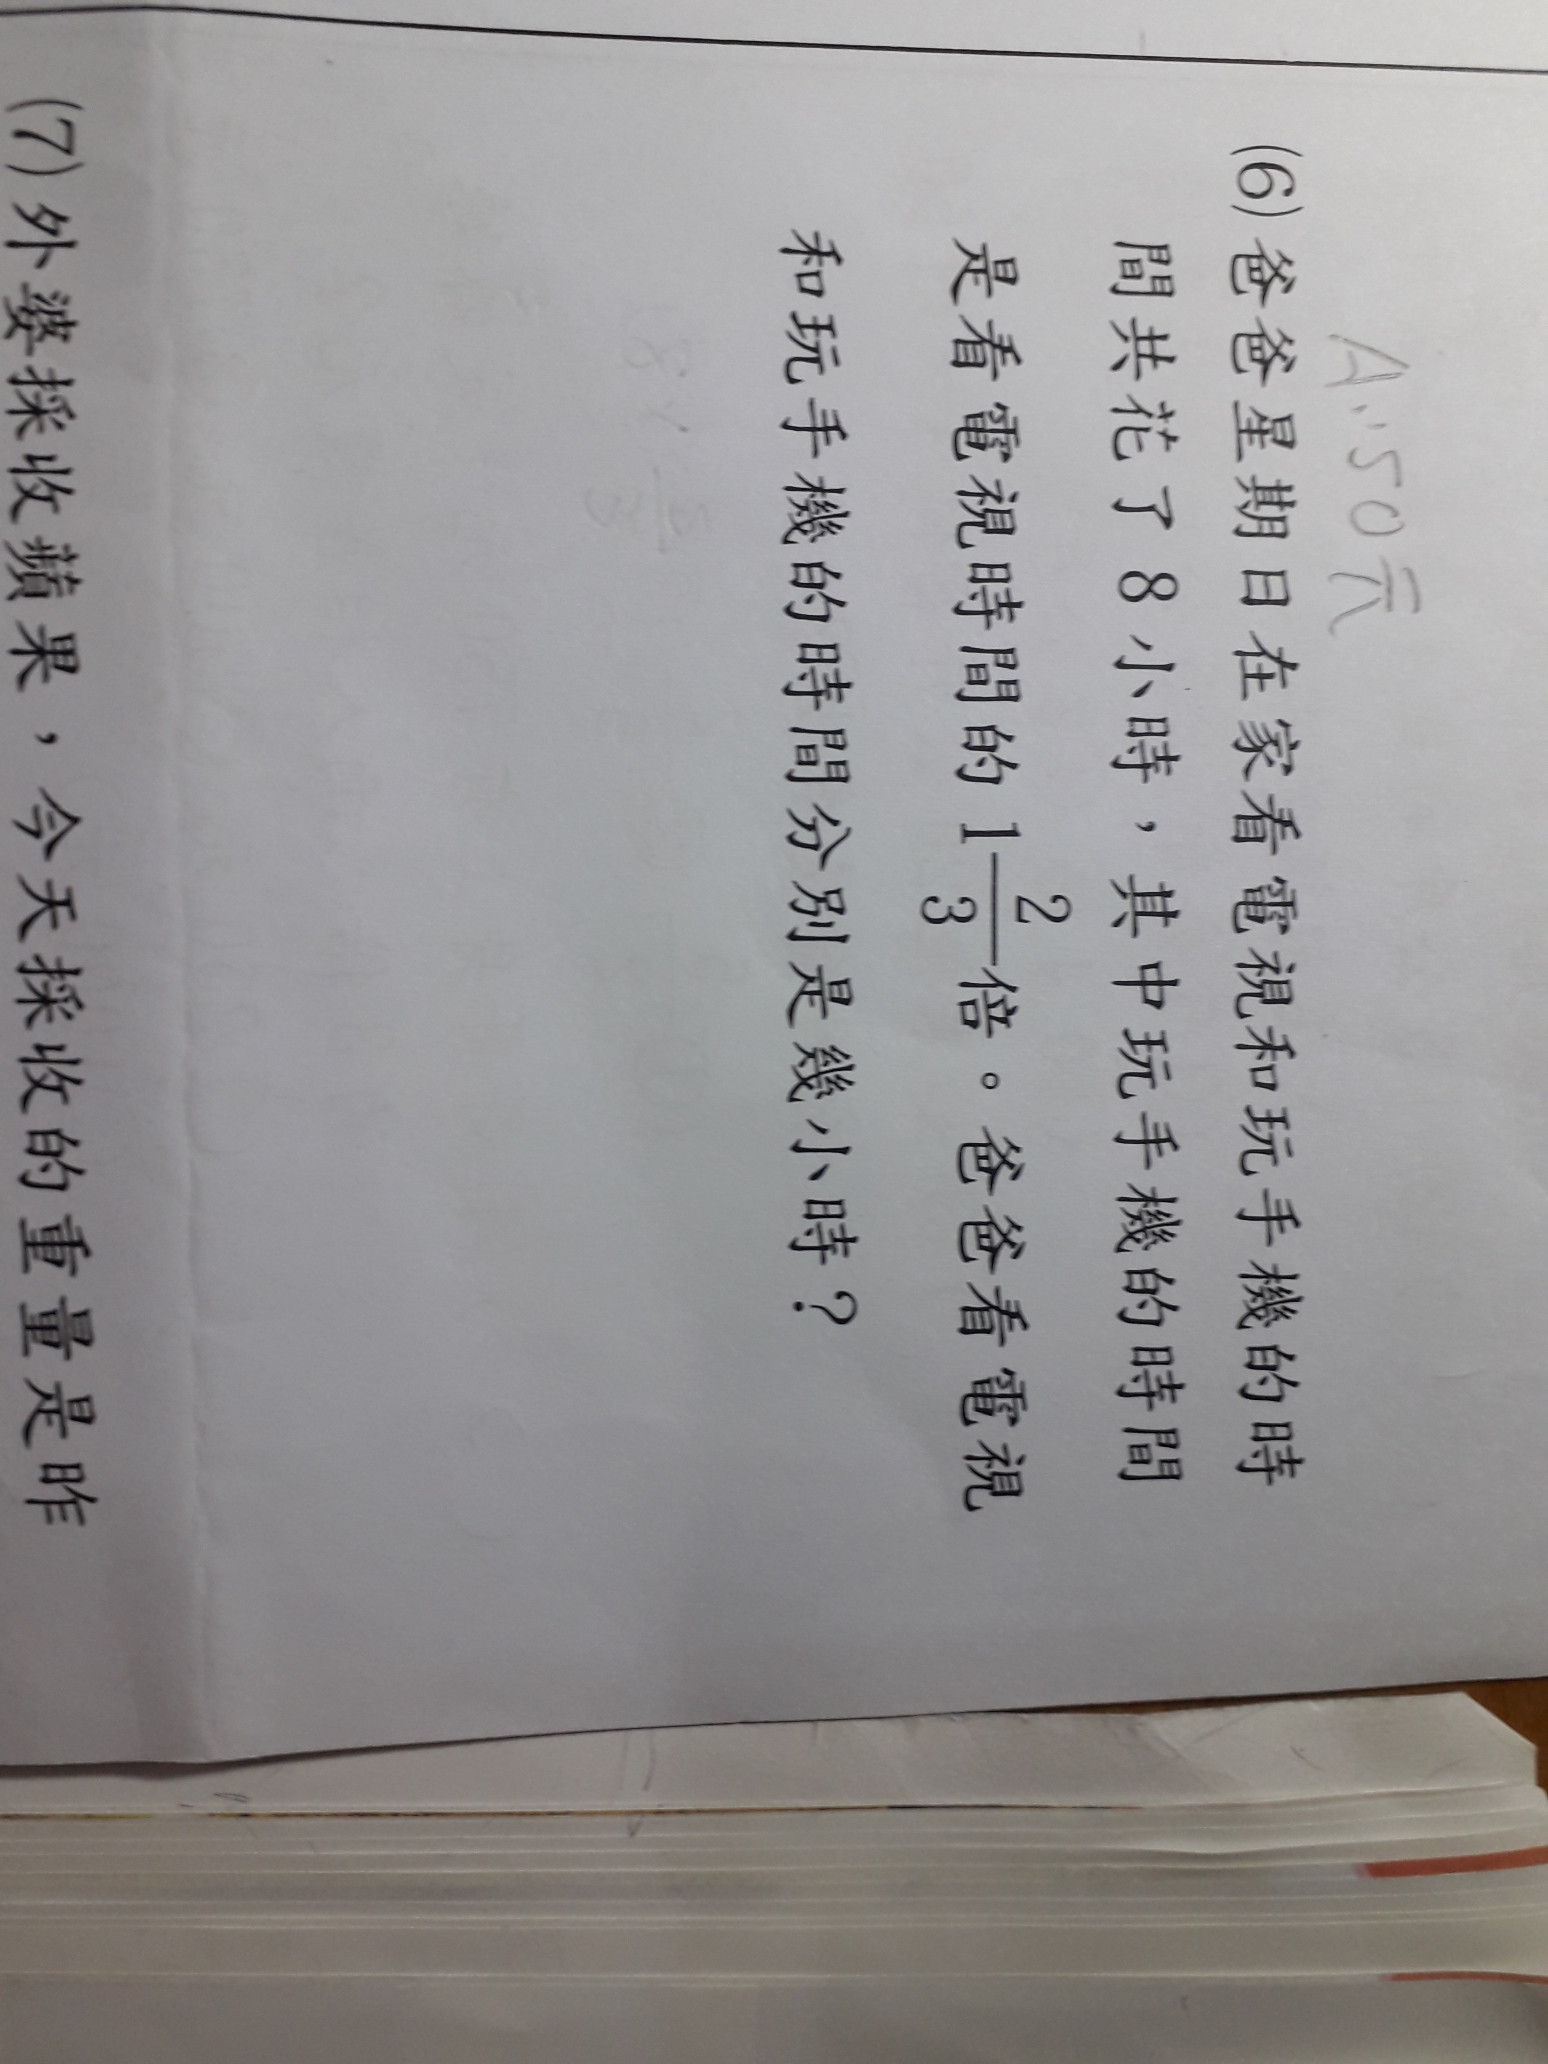 A:50元
(6)爸爸星期日在家看電視和玩手機的時
間共花了8小時，其中玩手機的時間
是看電視時間的1 2/3倍。爸爸看電視
和玩手機的時間分別是幾小時？
(7)外婆採收蘋果，今天採收的重量是昨